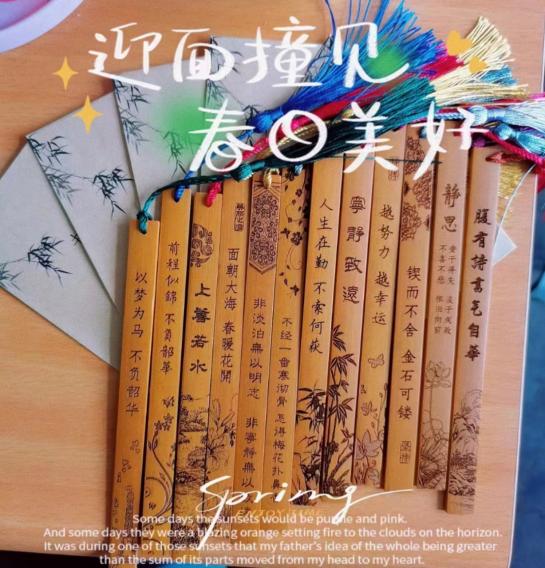 迎面撞见
春日美好
以梦为马 不负韶华
前程似錦 不負韶華
上善若水
面朝大海 春暖花開
非淡泊無以明志 非寧靜無以
不经一番寒彻骨 怎得梅花扑鼻
人生在勤 不索何获
寧靜致遠
越努力 越幸运
锲而不舍 金石可镂
静思
腹有诗書气自華
Spring
ENJOY TIME
Some days the sunsets would be purple and pink.
And some days they were a blazing orange setting fire to the clouds on the horizon.
It was during one of those sunsets that my father's idea of the whole being greater
than the sum of its parts moved from my head to my heart.